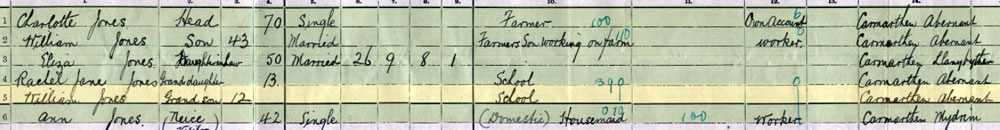 1 Charlotte Jones Head 70 Single Farmer 100 Own Account 6 Carmarthen Abernant
2 William Jones Son 43 Married Farmers Son working on farm worker Carmarthen Abernant
3 Eliza Jones 50 Married 26 9 8 1 Carmarthen Llanybyther
4 Rachel Jane Jones Granddaughter 13 School 390 Carmarthen Abernant
5 William Jones Grand son 12 School Carmarthen Abernant
6 Ann Jones (Neice 42 Single (Domestic) Housemaid 100 Worker Carmarthen Mydrim